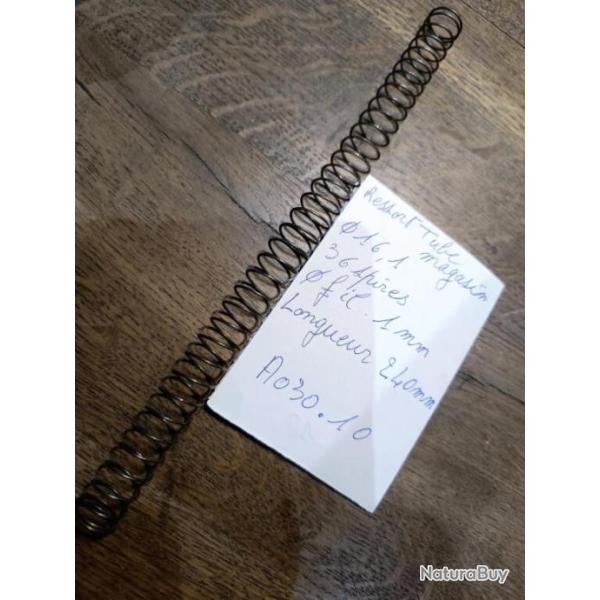 Ressort Tube
magasin
Ø 16,1
36 spires
Ø fil. 1mm
Longueur 240mm
A030.10
NaturaBuy